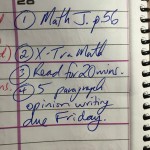 28
① Math J. p56
② X-Tra Math
③ Read for 20 mins.
④ 5 paragraph
opinion writing
due Friday.